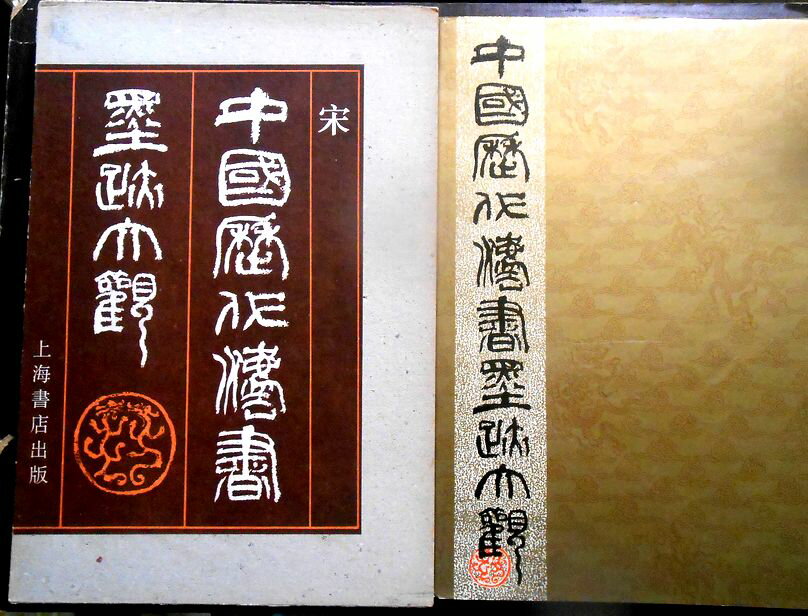 宋
中國歷代灋書
墨跡大觀
上海書店出版
中國歷代灋書墨跡大觀